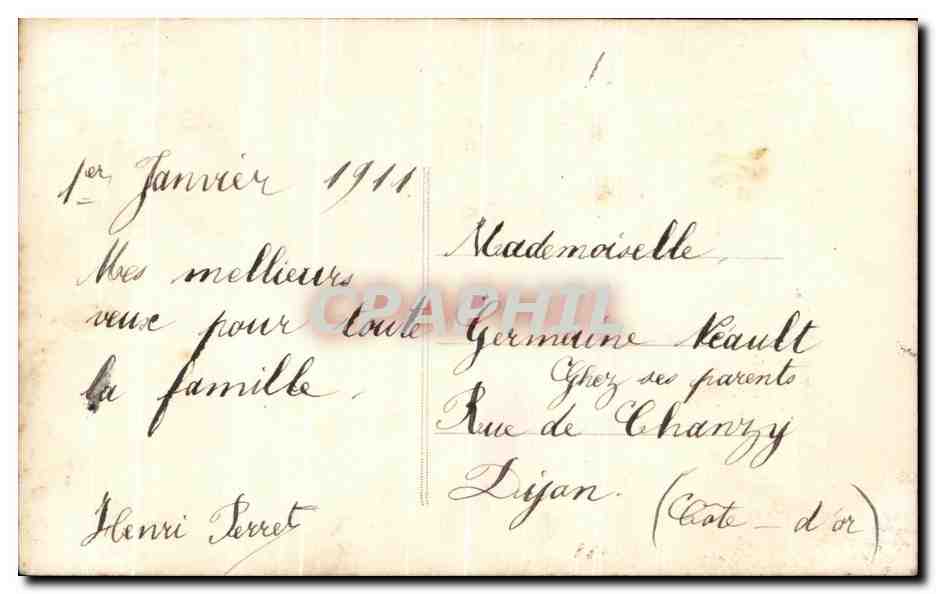 1er Janvier 1911.
Mes mellieurs
veux pour toute
la famille.
Henri Perret
Mademoiselle,
Germaine Néault
Chez ses parents
Rue de Chanzy
Dijon.
(Cote - d'or)
CPAPHIL